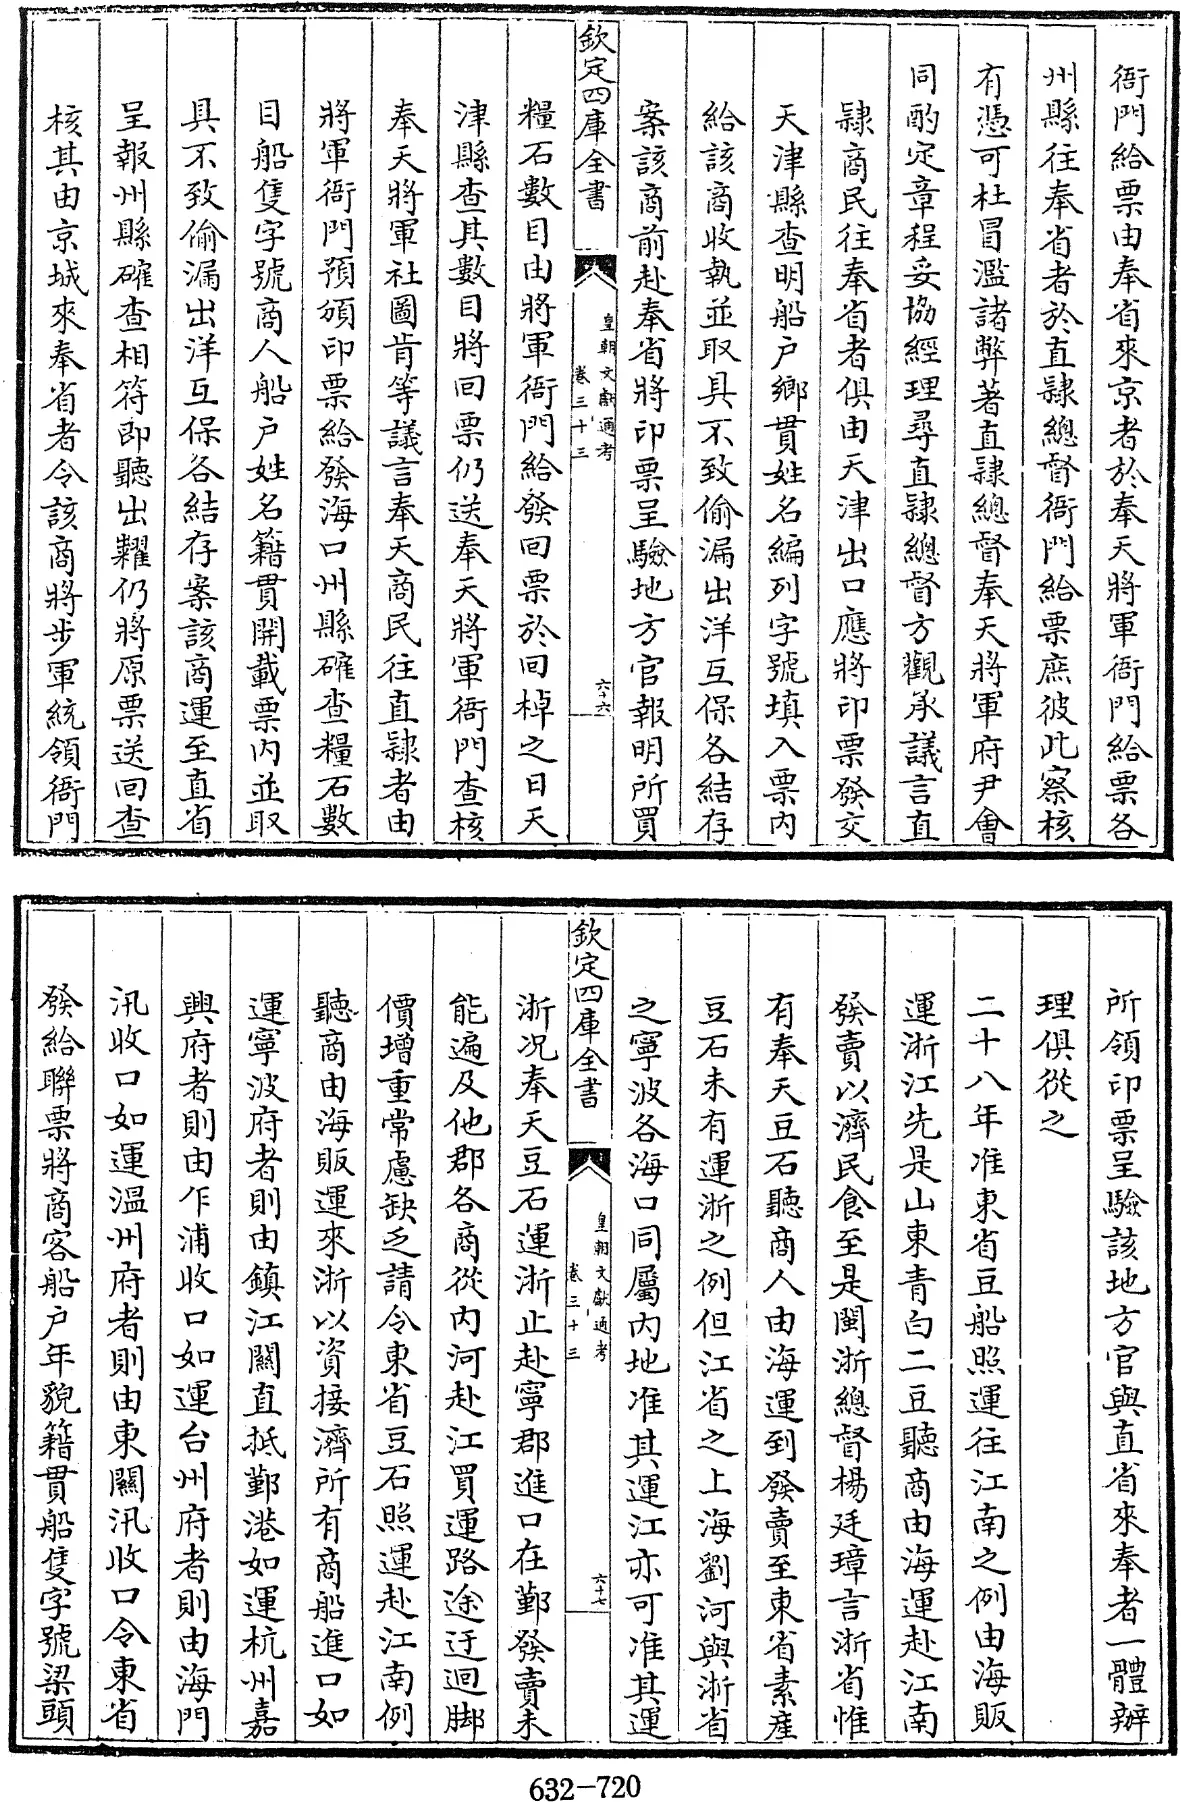 衙門給票由奉省來京者於奉天將軍衙門給票各
州縣往奉省者於直隸總督衙門給票庶彼此察核
有憑可杜冒濫諸弊著直隸總督奉天將軍府尹會
同酌定章程妥協經理尋直隸總督方觀承議言直
隸商民往奉省者俱由天津出口應將印票發交
天津縣查明船户鄉貫姓名編列字號填入票內
給該商收執並取具不致偷漏出洋互保各結存
案該商前赴奉省將印票呈驗地方官報明所買
欽定四庫全書
皇朝文獻通考
卷三十三
六十六
糧石數目由將軍衙門給發回票於回棹之日天
津縣查其數目將回票仍送奉天將軍衙門查核
奉天將軍社圖肯等議言奉天商民往直隸者由
將軍衙門預頒印票給發海口州縣確查糧石數
目船隻字號商人船户姓名籍貫開載票內並取
具不致偷漏出洋互保各結存案該商運至直省
呈報州縣確查相符即聽出糶仍將原票送回查
核其由京城來奉省者令該商將步軍統領衙門
所領印票呈驗該地方官與直省來奉者一體辦
理俱從之
二十八年准東省豆船照運往江南之例由海販
運浙江先是山東青白二豆聽商由海運赴江南
發賣以濟民食至是閩浙總督楊廷璋言浙省惟
有奉天豆石聽商人由海運到發賣至東省素產
豆石未有運浙之例但江省之上海劉河與浙省
之寧波各海口同屬內地准其運江亦可准其運
欽定四庫全書
皇朝文獻通考
卷三十三
六十七
浙况奉天豆石運浙止赴寧郡進口在鄞發賣未
能遍及他郡各商從内河赴江買運路途迂迴脚
價增重常慮缺乏請令東省豆石照運赴江南例
聽商由海販運來浙以資接濟所有商船進口如
運寧波府者則由鎮江關直抵鄞港如運杭州嘉
興府者則由乍浦收口如運台州府者則由海門
汛收口如運溫州府者則由東關汛收口令東省
發給聯票將商客船户年貌籍貫船隻字號梁頭
632-720